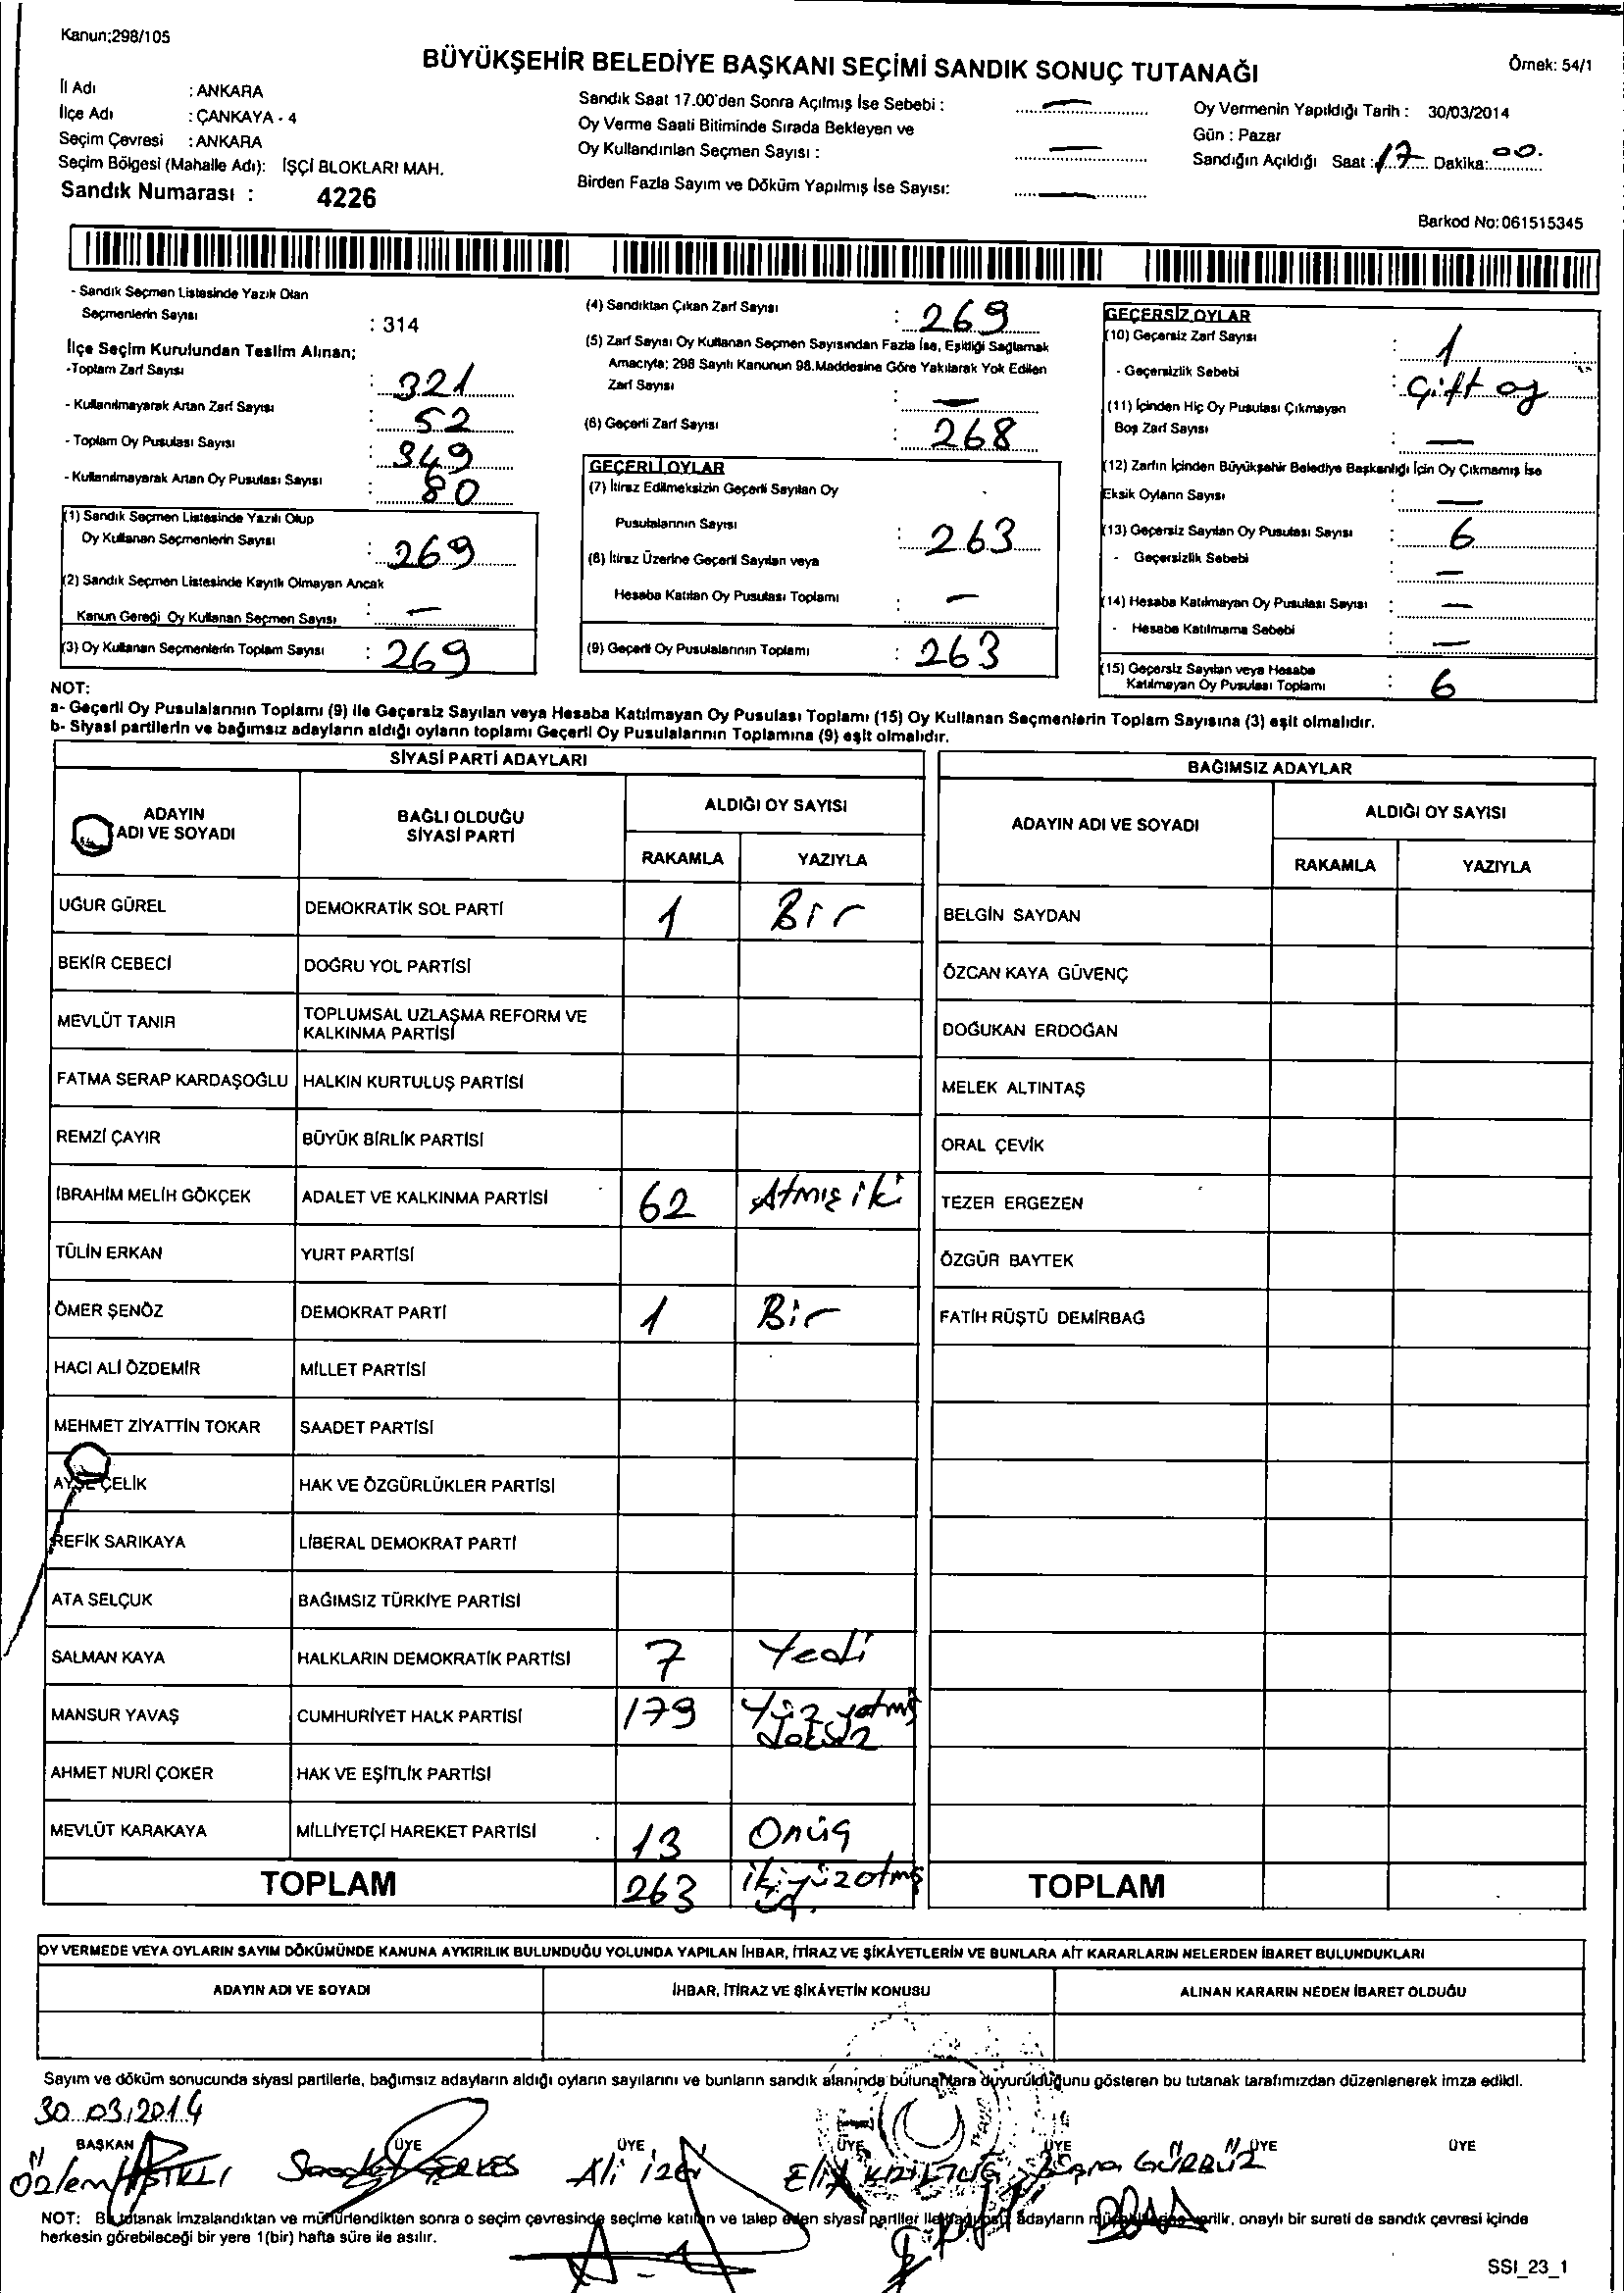 Kanun;298/105
BÜYÜKŞEHİR BELEDİYE BAŞKANI SEÇİMİ SANDIK SONUÇ TUTANAĞI
Örnek: 54/1
İl Adı : ANKARA
İlçe Adı : ÇANKAYA - 4
Seçim Çevresi : ANKARA
Seçim Bölgesi (Mahalle Adı): İŞÇİ BLOKLARI MAH.
Sandık Numarası : 4226
Sandık Saat 17.00'den Sonra Açılmış İse Sebebi : —
Oy Verme Saati Bitiminde Sırada Bekleyen ve
Oy Kullandırılan Seçmen Sayısı : —
Birden Fazla Sayım ve Döküm Yapılmış İse Sayısı: —
Oy Vermenin Yapıldığı Tarih : 30/03/2014
Gün : Pazar
Sandığın Açıldığı Saat : 17 Dakika: 00.
Barkod No: 061515345
- Sandık Seçmen Listesinde Yazılı Olan
Seçmenlerin Sayısı : 314
İlçe Seçim Kurulundan Teslim Alınan;
-Toplam Zarf Sayısı : 321
- Kullanılmayarak Artan Zarf Sayısı : 52
- Toplam Oy Pusulası Sayısı : 349
- Kullanılmayarak Artan Oy Pusulası Sayısı : 80
(1) Sandık Seçmen Listesinde Yazılı Olup
Oy Kullanan Seçmenlerin Sayısı : 269
(2) Sandık Seçmen Listesinde Kayıtlı Olmayan Ancak
Kanun Gereği Oy Kullanan Seçmen Sayısı : —
(3) Oy Kullanan Seçmenlerin Toplam Sayısı : 269
(4) Sandıktan Çıkan Zarf Sayısı : 269
(5) Zarf Sayısı Oy Kullanan Seçmen Sayısından Fazla İse, Eşitliği Sağlamak
Amacıyla; 298 Sayılı Kanunun 98.Maddesine Göre Yakılarak Yok Edilen
Zarf Sayısı : —
(6) Geçerli Zarf Sayısı : 268
GEÇERLİ OYLAR
(7) İtiraz Edilmeksizin Geçerli Sayılan Oy
Pusulalarının Sayısı : 263
(8) İtiraz Üzerine Geçerli Sayılan veya
Hesaba Katılan Oy Pusulası Toplamı : —
(9) Geçerli Oy Pusulalarının Toplamı : 263
GEÇERSİZ OYLAR
(10) Geçersiz Zarf Sayısı : 1
- Geçersizlik Sebebi : Çift oy
(11) İçinden Hiç Oy Pusulası Çıkmayan
Boş Zarf Sayısı : —
(12) Zarfın İçinden Büyükşehir Belediye Başkanlığı İçin Oy Çıkmamış İse
Eksik Oyların Sayısı : —
(13) Geçersiz Sayılan Oy Pusulası Sayısı : 6
- Geçersizlik Sebebi : —
(14) Hesaba Katılmayan Oy Pusulası Sayısı : —
- Hesaba Katılmama Sebebi : —
(15) Geçersiz Sayılan veya Hesaba
Katılmayan Oy Pusulası Toplamı : 6
NOT:
a- Geçerli Oy Pusulalarının Toplamı (9) ile Geçersiz Sayılan veya Hesaba Katılmayan Oy Pusulası Toplamı (15) Oy Kullanan Seçmenlerin Toplam Sayısına (3) eşit olmalıdır.
b- Siyasi partilerin ve bağımsız adayların aldığı oyların toplamı Geçerli Oy Pusulalarının Toplamına (9) eşit olmalıdır.
SİYASİ PARTİ ADAYLARI
ADAYIN ADI VE SOYADI BAĞLI OLDUĞU SİYASİ PARTİ ALDIĞI OY SAYISI
RAKAMLA YAZIYLA
UĞUR GÜREL DEMOKRATİK SOL PARTİ 1 Bir
BEKİR CEBECİ DOĞRU YOL PARTİSİ
MEVLÜT TANIR TOPLUMSAL UZLAŞMA REFORM VE
KALKINMA PARTİSİ
FATMA SERAP KARDAŞOĞLU HALKIN KURTULUŞ PARTİSİ
REMZİ ÇAYIR BÜYÜK BİRLİK PARTİSİ
İBRAHİM MELİH GÖKÇEK ADALET VE KALKINMA PARTİSİ 62 Atmış iki
TÜLİN ERKAN YURT PARTİSİ
ÖMER ŞENÖZ DEMOKRAT PARTİ 1 Bir
HACI ALİ ÖZDEMİR MİLLET PARTİSİ
MEHMET ZİYATTİN TOKAR SAADET PARTİSİ
AYŞE ÇELİK HAK VE ÖZGÜRLÜKLER PARTİSİ
REFİK SARIKAYA LİBERAL DEMOKRAT PARTİ
ATA SELÇUK BAĞIMSIZ TÜRKİYE PARTİSİ
SALMAN KAYA HALKLARIN DEMOKRATİK PARTİSİ 7 Yedi
MANSUR YAVAŞ CUMHURİYET HALK PARTİSİ 179 Yüz yetmiş
dokuz
AHMET NURİ ÇOKER HAK VE EŞİTLİK PARTİSİ
MEVLÜT KARAKAYA MİLLİYETÇİ HAREKET PARTİSİ 13 Onüç
TOPLAM 263 ikiyüzatmış
üç.
BAĞIMSIZ ADAYLAR
ADAYIN ADI VE SOYADI ALDIĞI OY SAYISI
RAKAMLA YAZIYLA
BELGİN SAYDAN
ÖZCAN KAYA GÜVENÇ
DOĞUKAN ERDOĞAN
MELEK ALTINTAŞ
ORAL ÇEVİK
TEZER ERGEZEN
ÖZGÜR BAYTEK
FATİH RÜŞTÜ DEMİRBAĞ
TOPLAM
OY VERMEDE VEYA OYLARIN SAYIM DÖKÜMÜNDE KANUNA AYKIRILIK BULUNDUĞU YOLUNDA YAPILAN İHBAR, İTİRAZ VE ŞİKÂYETLERİN VE BUNLARA AİT KARARLARIN NELERDEN İBARET BULUNDUKLARI
ADAYIN ADI VE SOYADI İHBAR, İTİRAZ VE ŞİKÂYETİN KONUSU ALINAN KARARIN NEDEN İBARET OLDUĞU
Sayım ve döküm sonucunda siyasi partilerle, bağımsız adayların aldığı oyların sayılarını ve bunların sandık alanında bulunanlara duyurulduğunu gösteren bu tutanak tarafımızdan düzenlenerek imza edildi.
30.03.2014
BAŞKAN ÜYE ÜYE ÜYE ÜYE ÜYE ÜYE
Özlem Ali Elif GÜRBÜZ
NOT: Bu tutanak imzalandıktan ve mühürlendikten sonra o seçim çevresinde seçime katılan ve talep eden siyasi partiler ile bağımsız adayların müşahitlerine verilir, onaylı bir sureti de sandık çevresi içinde
herkesin görebileceği bir yere 1(bir) hafta süre ile asılır.
SSI_23_1